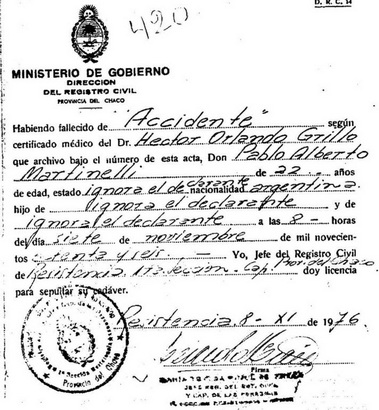 D. R. C. 14
420
MINISTERIO DE GOBIERNO
DIRECCION
DEL REGISTRO CIVIL
PROVINCIA DEL CHACO
Habiendo fallecido de "Accidente" según
certificado médico del Dr. Hector Orlando Grillo
que archivo bajo el número de esta acta, Don Pablo Alberto
Martinelli de 22 años
de edad, estado ignora el declarante nacionalidad argentina
hijo de ignora el declarante y de
ignora el declarante a las 8- horas
del día siete de noviembre de mil novecien-
tos setenta y seis, - Yo, Jefe del Registro Civil
de Resistencia 1ra. Seccion Cap. Prov. del Chaco doy licencia
para sepultar su cadáver.
Resistencia 8- XI de 1976
Firma
Provincia del Chaco